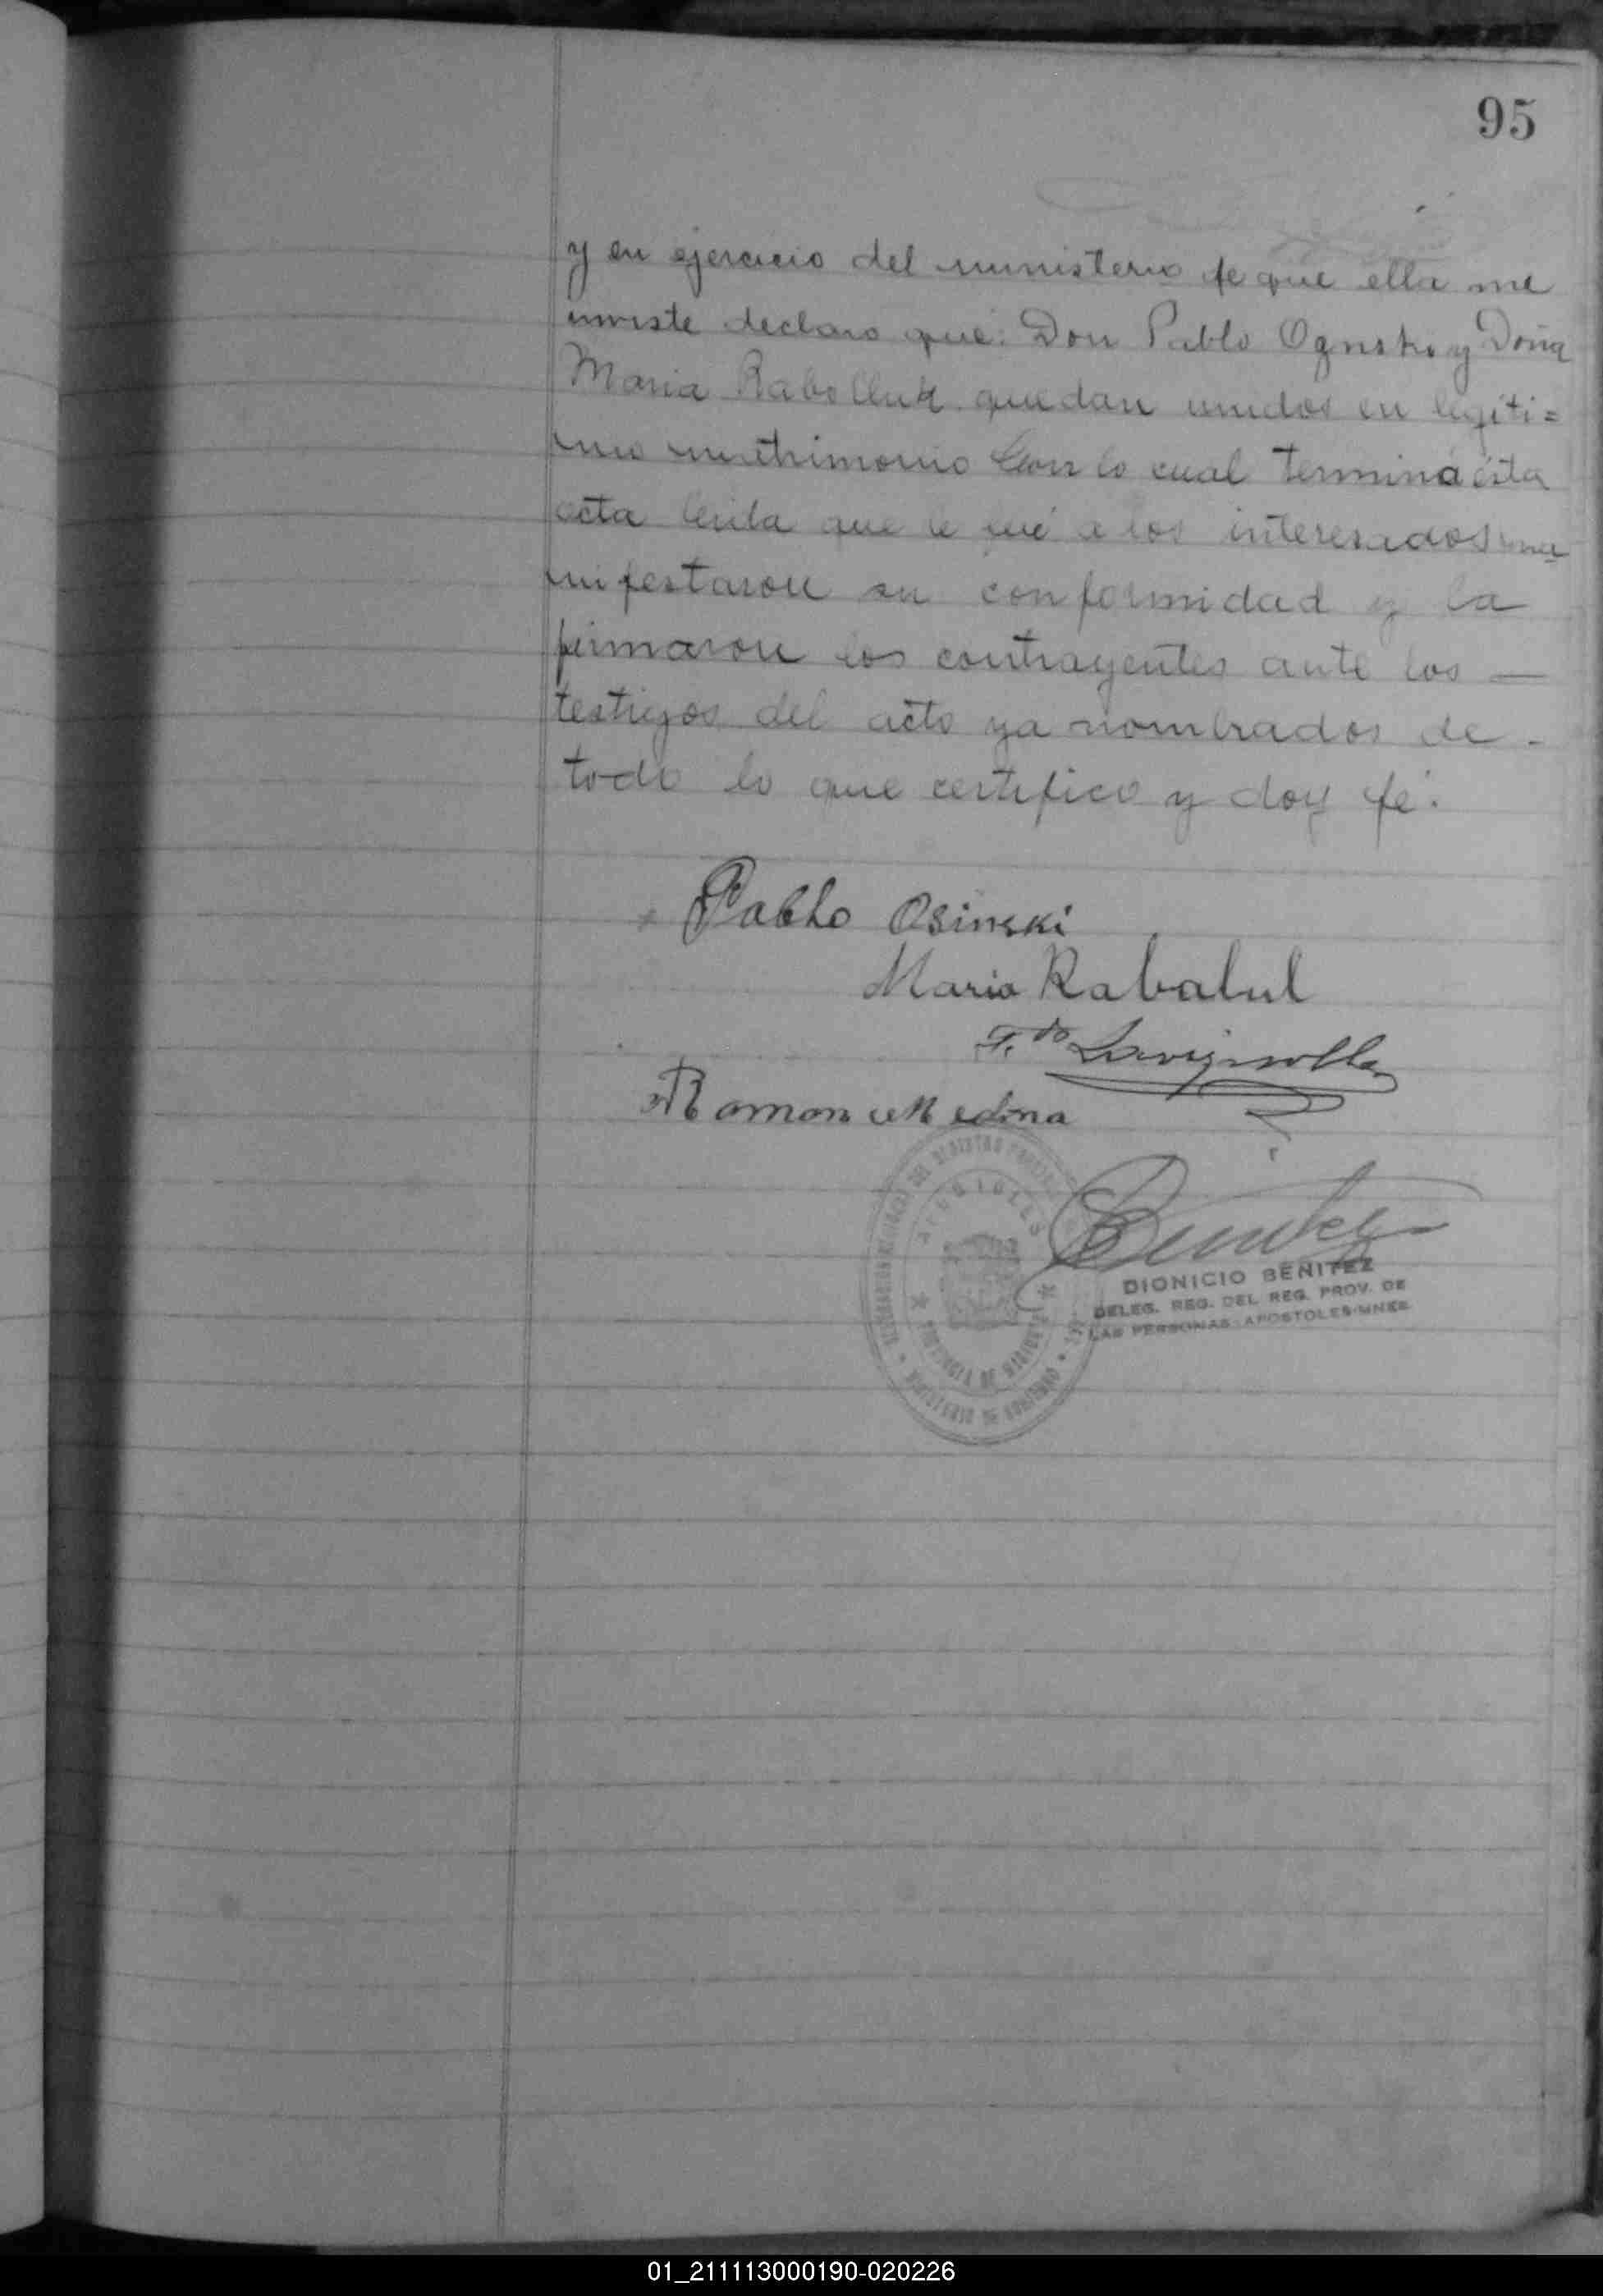 95
y en ejercicio del ministerio de que ella me
inviste declaro que: Don Pablo Ognski y Doña
Maria Rabolluk quedan unidos en legiti=
mo matrimonio Con lo cual terminá ésta
acta leida que le fué a los interesados ma
nifestaron su conformidad y la
firmaron los contrayentes ante los —
testigos del acto ya nombrados de -
todo lo que certifico y doy fé.
Pablo Osinski
Maria Rabalul
F.do Lavignolle
Ramon Medina
Benitez
DIONICIO BENITEZ
DELEG. REG. DEL REG. PROV. DE
LAS PERSONAS-APOSTOLES-MNES.
PROVINCIA DE MISIONES
MINISTERIO DE GOBIERNO
01_211113000190-020226